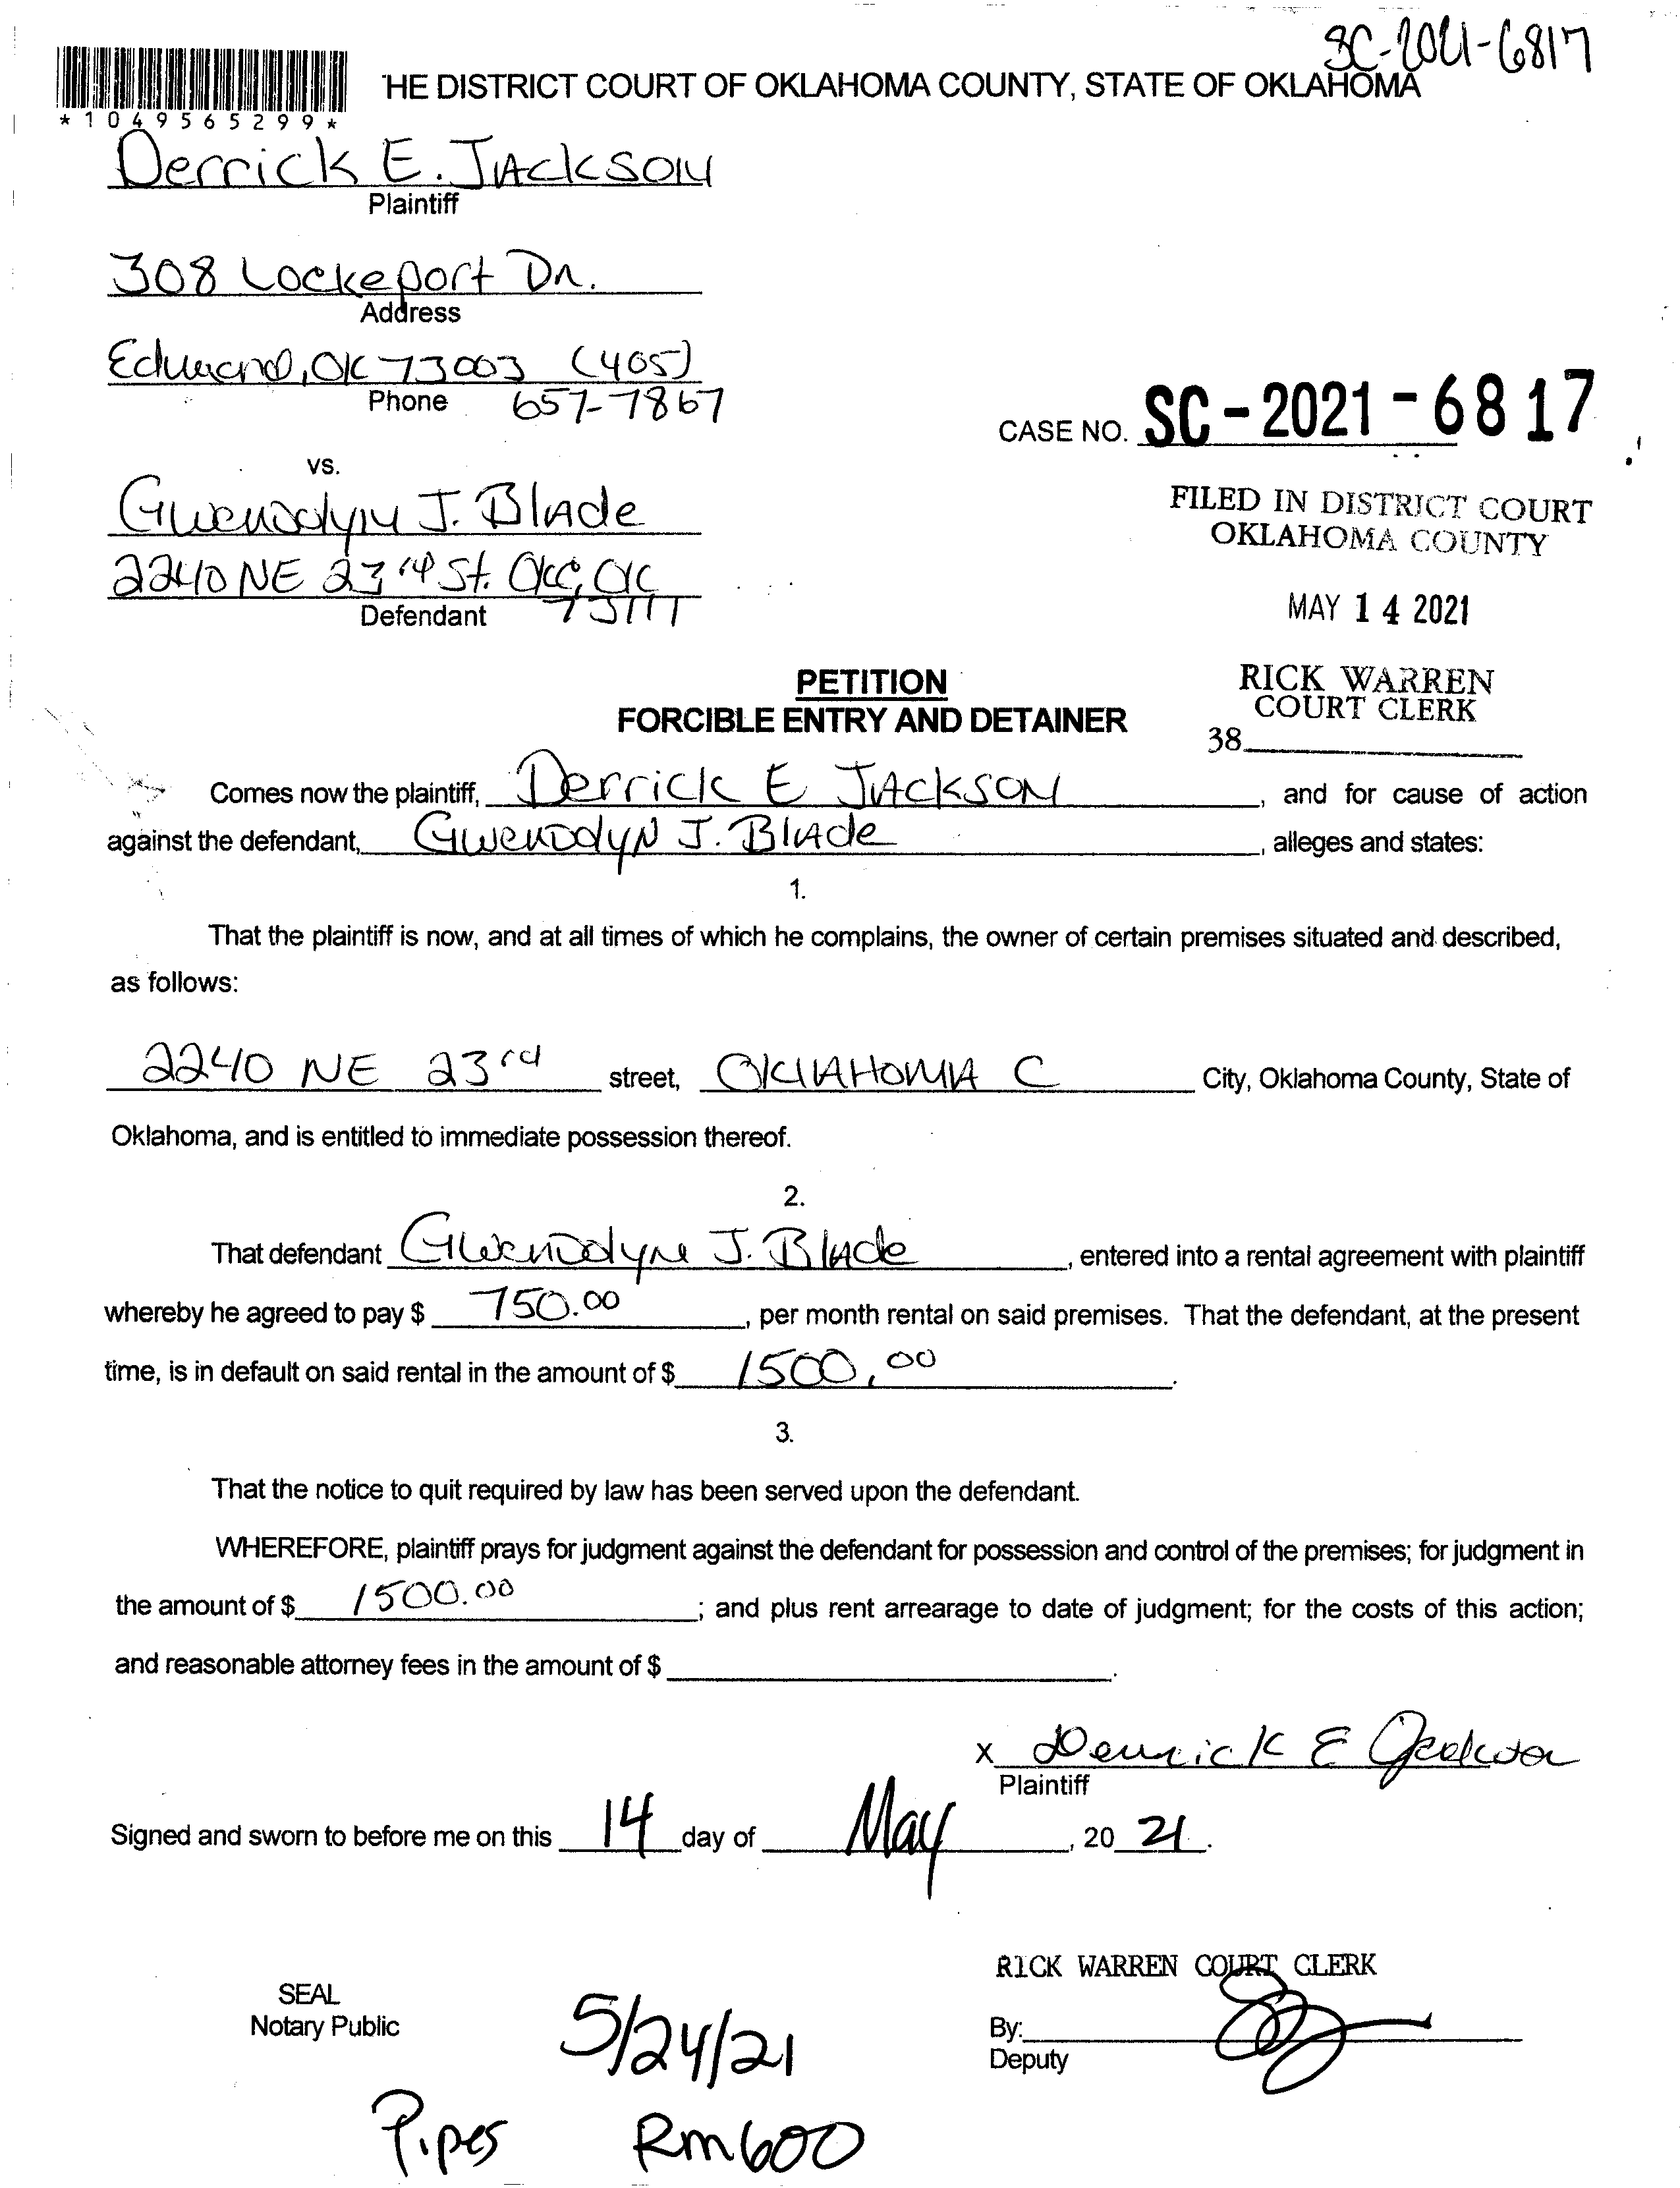 SC-2021-6817
*1049565299*
HE DISTRICT COURT OF OKLAHOMA COUNTY, STATE OF OKLAHOMA
Derrick E. Jackson
Plaintiff
308 Lockeport Dr.
Address
Edmond, OK 73003 (405)
Phone 657-7867
CASE NO. SC-2021-6817
vs.
Gwendolyn J. Blade
2240 NE 23rd St. OKC, OK
Defendant 73111
FILED IN DISTRICT COURT
OKLAHOMA COUNTY
MAY 14 2021
RICK WARREN
COURT CLERK
38
PETITION
FORCIBLE ENTRY AND DETAINER
Comes now the plaintiff, Derrick E Jackson, and for cause of action
against the defendant, Gwendolyn J. Blade, alleges and states:
1.
That the plaintiff is now, and at all times of which he complains, the owner of certain premises situated and described,
as follows:
2240 NE 23rd street, OKLAHOMA C City, Oklahoma County, State of
Oklahoma, and is entitled to immediate possession thereof.
2.
That defendant Gwendolyne J. Blade, entered into a rental agreement with plaintiff
whereby he agreed to pay $ 750.00, per month rental on said premises. That the defendant, at the present
time, is in default on said rental in the amount of $ 1500.00.
3.
That the notice to quit required by law has been served upon the defendant.
WHEREFORE, plaintiff prays for judgment against the defendant for possession and control of the premises; for judgment in
the amount of $ 1500.00; and plus rent arrearage to date of judgment; for the costs of this action;
and reasonable attorney fees in the amount of $ .
x Derrick E Jackson
Plaintiff
Signed and sworn to before me on this 14 day of May, 20 21.
RICK WARREN COURT CLERK
SEAL
Notary Public
5/24/21
By:
Deputy
Pipes Rm 600